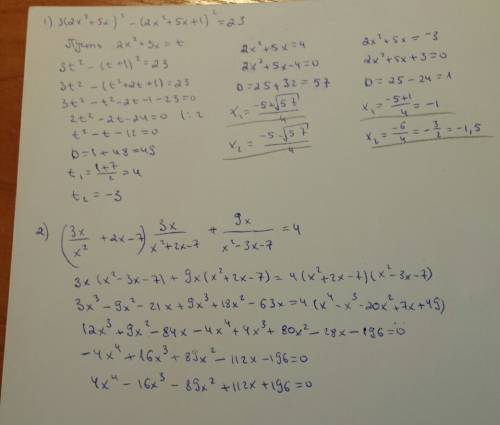 1) 3(2x²+5x)² - (2x²+5x+1)² = 23
Пусть 2x²+5x = t
3t² - (t+1)² = 23
3t² - (t²+2t+1) = 23
3t² - t² - 2t - 1 - 23 = 0
2t² - 2t - 24 = 0 (: 2
t² - t - 12 = 0
D = 1 + 48 = 49
t₁ = (1+7)/2 = 4
t₂ = -3
2x²+5x = 4
2x²+5x-4 = 0
D = 25 + 32 = 57
x₁ = (-5+√57)/4
x₂ = (-5-√57)/4
2x²+5x = -3
2x²+5x+3 = 0
D = 25 - 24 = 1
x₁ = (-5+1)/4 = -1
x₂ = -6/4 = -3/2 = -1,5
2) (3x/x² + 2x - 7) 3x/(x²+2x-7) + 9x/(x²-3x-7) = 4
3x(x²-3x-7) + 9x(x²+2x-7) = 4(x²+2x-7)(x²-3x-7)
3x³ - 9x² - 21x + 9x³ + 18x² - 63x = 4(x⁴ - x³ - 20x² + 7x + 49)
12x³ + 9x² - 84x - 4x⁴ + 4x³ + 80x² - 28x - 196 = 0
-4x⁴ + 16x³ + 89x² - 112x - 196 = 0
4x⁴ - 16x³ - 89x² + 112x + 196 = 0